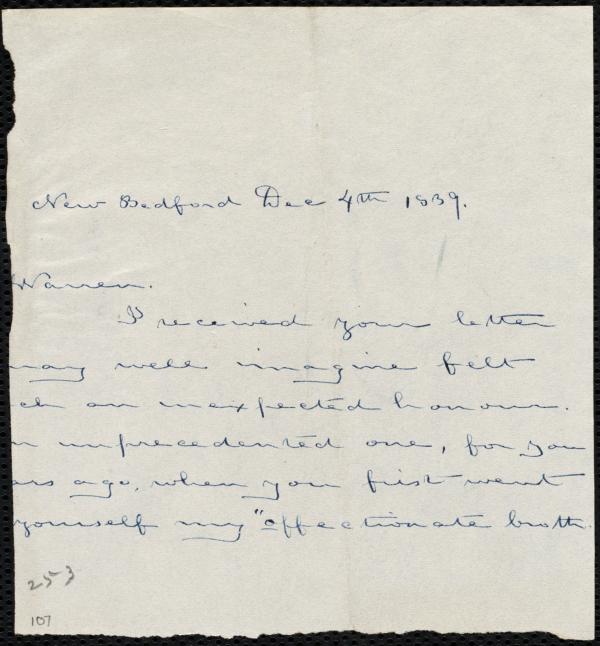 New Bedford Dec 4th 1839.
Warren.
I received your letter
may well imagine felt
ch an unexpected honour.
n unprecedented one, for you
ars ago, when you first went
yourself my "affectionate broth
253
107